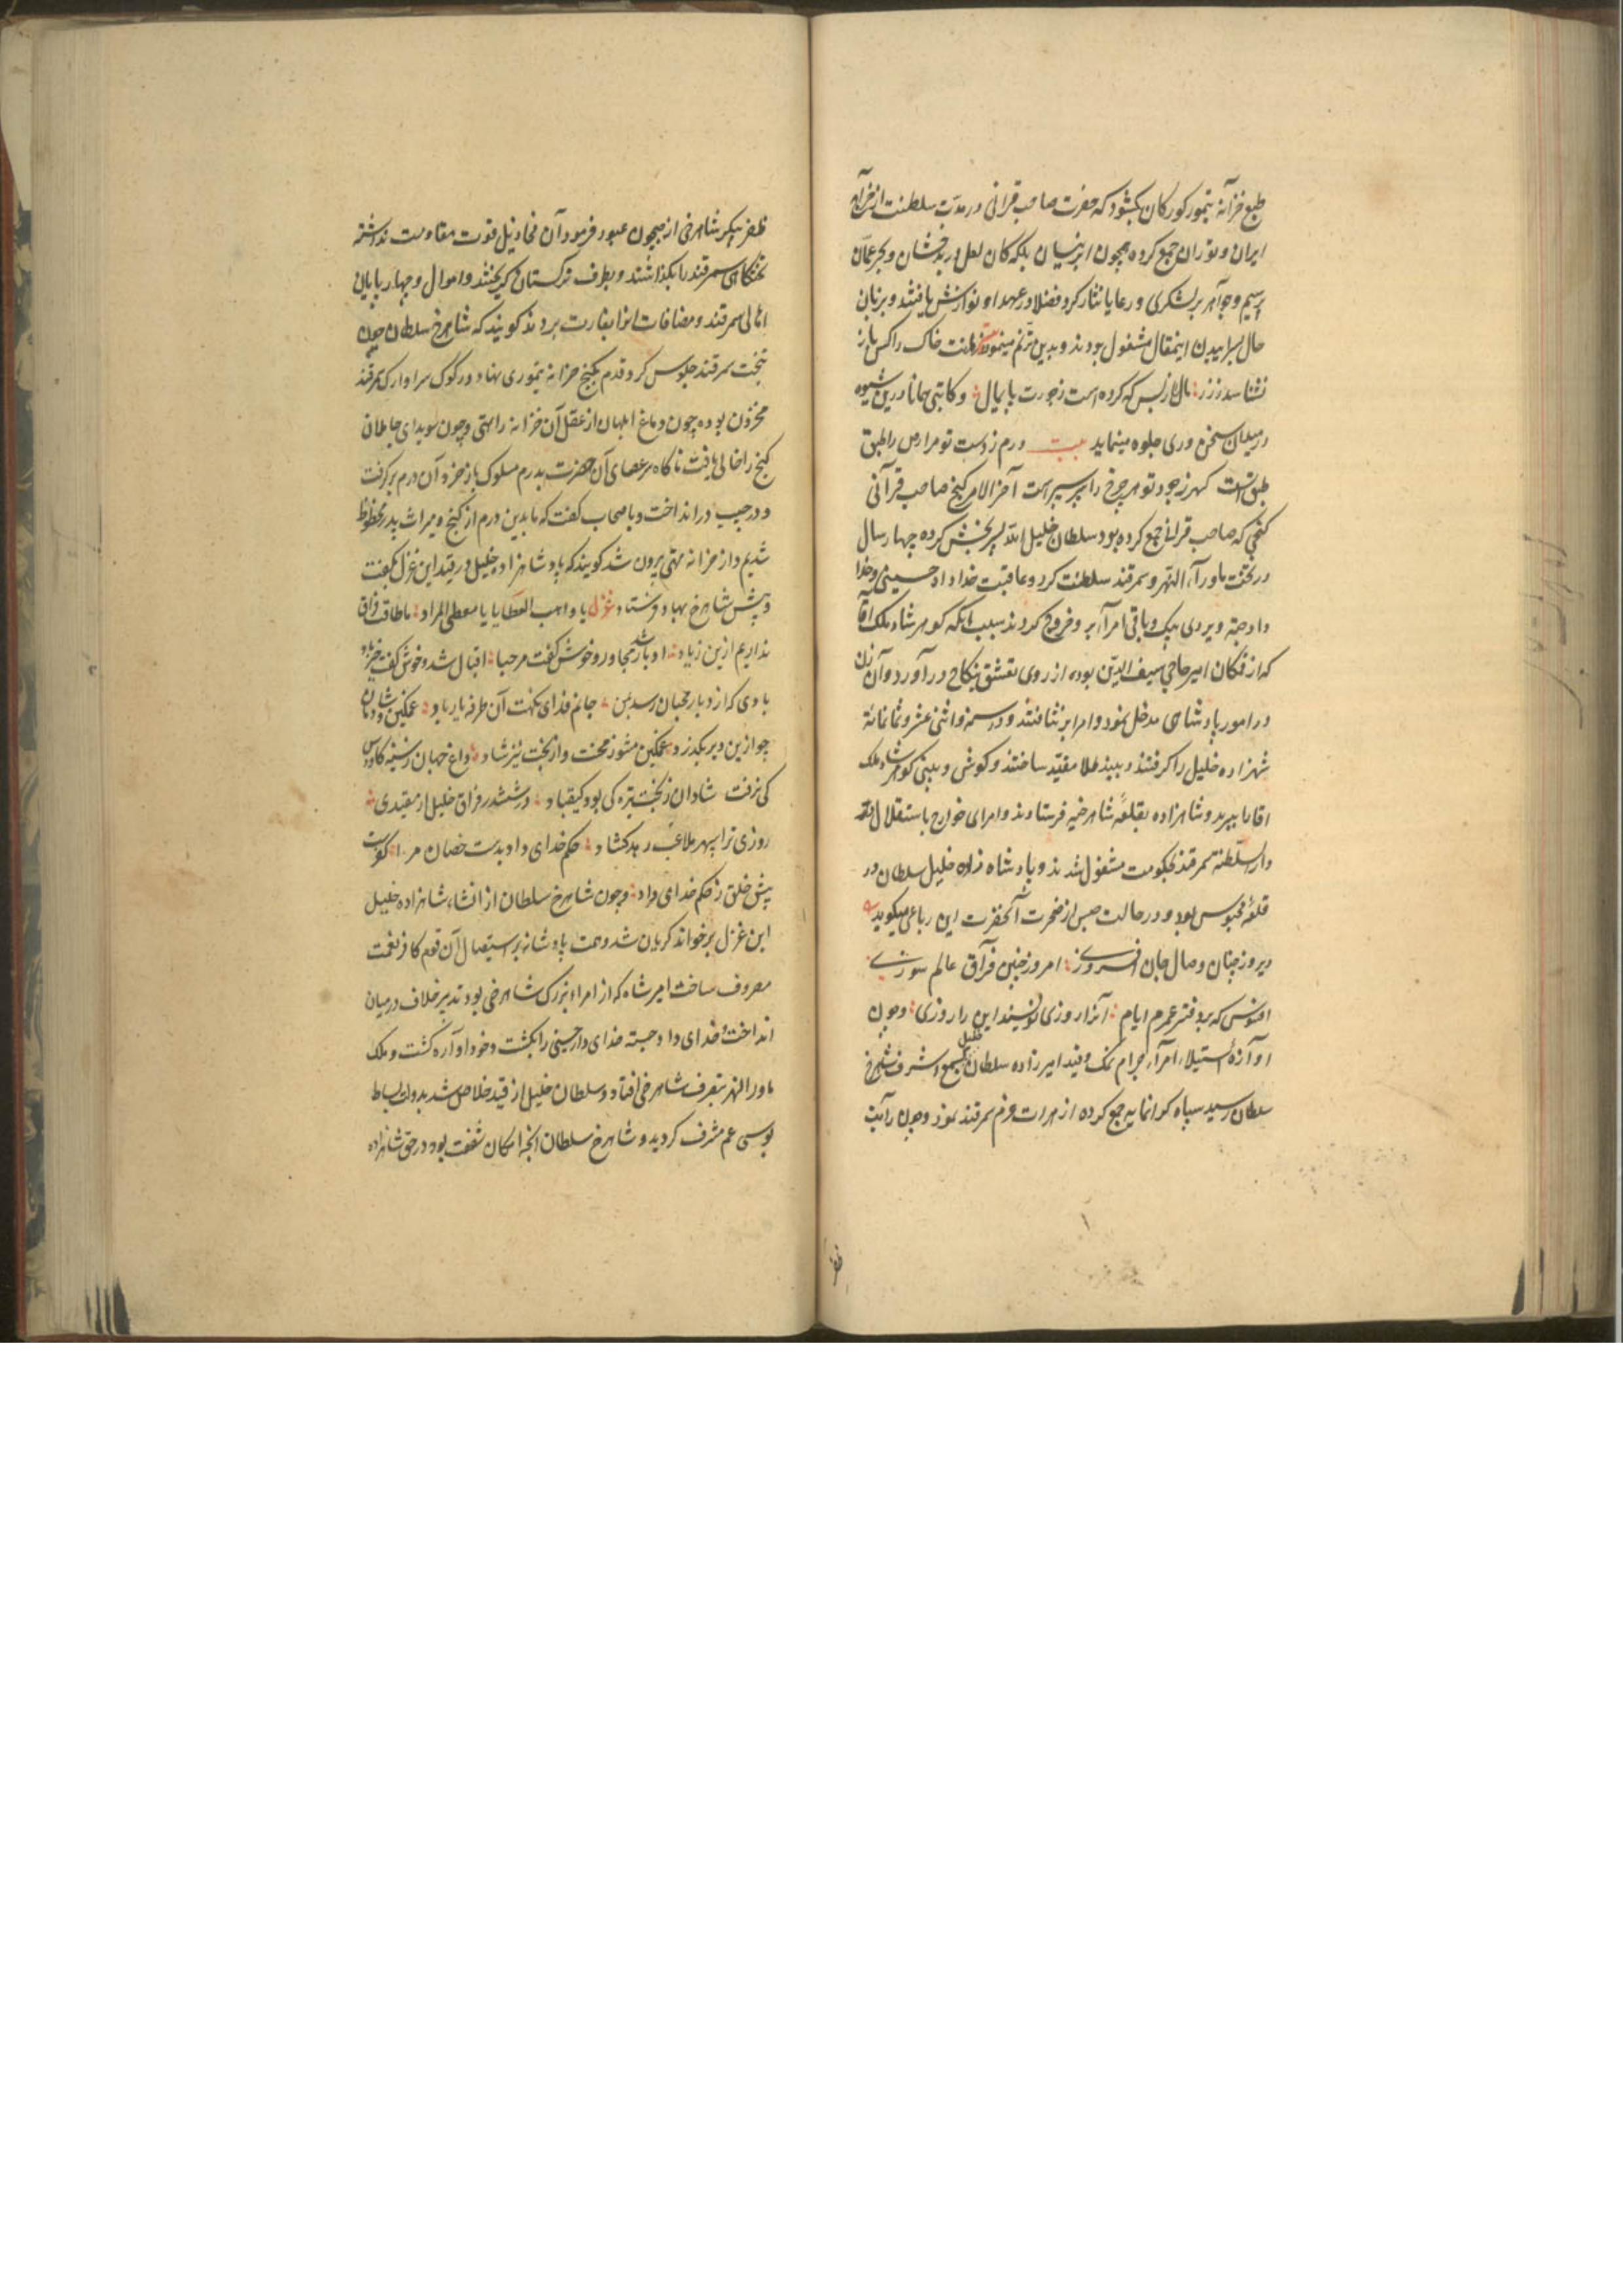 طبع خزانه تیمور کورکان بکشود که حضرت صاحب قرانی در مدت سلطنت از خراج
ایران و توران جمع کرده همچون ابر نیسان بلکه کان لعل در بدخشان و بحر عمان
بر سیم و جواهر بر لشکری و رعایا نثار کرد و فضلا در عهد او نوازش یافتند و بزبان
حال بسراییدن اینمقال مشغول بودند و بدین ترنم مینمودند خاک را کس باز
نشناسد ز زر مال از بس که کرده است ز جودت پایمال و کاتبی همانا درین شیوه
در میدان سخن وری جلوه مینماید بیت درم ز دست تو مرارض را طبق
طبق است کهر ز جود تو مر چرخ را سپر سپر است آخر الامر کنج صاحب قرانی
کنجی که صاحب قرانی جمع کرده بود سلطان خلیل الله بپر بخش کرده چهار سال
در تخت ماوراء النهر و سمرقند سلطنت کرد و عاقبت خداداد حسینی و خدا
داد جته و بردی بیک و باقی امراء بر و خروج کردند سبب آنکه کوهر شاد ملک آقا
که از قمکان امیر حاجی سیف الدین بود از روی تعشق بنکاح در آورد و آن زن
در امور پادشاهی مدخل نمود و امرا بر نتافتند و در سنه و اثنی عشر و ثمانمائه
شهزاده خلیل را کرفتند و ببند طلا مقید ساختند و کوش و بینی کوهر شاد ملک
اقا را ببرید و شاهزاده بقلعه شاهرخیه فرستادند و امرای خوارج باستقلال در
دار السلطنه سمرقند بحکومت مشغول شدند و پادشاه زاده خلیل سلطان در
قلعه محبوس بود و در حالت حبس از ضجرت آنحضرت این رباعی میکوید
دیروز چنان وصال جان افروزی امروز چنین فراق عالم سوزی
افسوس که بر دفتر عمرم ایام آنرا روزی نویسند این را روزی و چون
اوازه استیلاء امراء حرام نمک و قید امیرزاده سلطان خلیل بسمع اشرف شاهرخ
سلطان رسید سپاه کرانمایه جمع کرده از هرات عزم سمرقند نمود و چون رایت
ظفر
ظفر پیکر شاهرخی از جیحون عبور فرمود آن مخاذیل قوت مقاومت نداشته
تختگاه سمرقند را بکذاشتند و بطرف ترکستان کریختند و اموال و چهار پایان
اهالی سمرقند و مضافات انرا بغارت بردند کویند که شاهرخ سلطان چون
بتخت سمرقند جلوس کرد قدم بکنج خزانه تیموری نهاد و در کوک سرا و ارک سمرقند
مخزون بوده چون دماغ ابلهان از عقل آن خزانه را تهی و چون سویدای جاهلان
کنج را خالی یافت ناکاه سر عصای آن حضرت بدرم مسلوک باز خورد آن درم بر کرفت
و در جیب در انداخت و باصحاب کفت که ما بدین درم از کنج و میراث پدر محظوظ
شدیم و از خزانه تهی بیرون شد کویند که پادشاهزاده خلیل در قید این غزل بکفت
و پیش شاهرخ بهادر فرستاد غزل یا واهب العطایا یا معطی المراد ما طاقت فراق
نداریم ازین زیاد ادبار شد مجاور و خوش کفت مرحبا اقبال شد و خوش کفت خیر باد
بادی که از دیار محبان رسد بمن جانم فدای نکهت آن طرفه یار باد غمکین و شادمان
چو ازین دیر بکذرد غمکین مشو ز محنت و از بخت نیز شاد داغ جهان ز سینه کاوس
کی نرفت شادان ز بخت تیره کی بود کیقباد در ششدر فراق خلیل ار مقیدی
روزی ترا سپهر ملاعب دهد کشاد حکم خدای داد بدست خصان مرا کو دست
پیش خلق ز حکم خدای داد و چون شاهرخ سلطان از انشاء شاهزاده خلیل
این غزل بر خواند کریان شد و همت پادشانه بر استیصال آن قوم کافر نعمت
معروف ساخت امیر شاه که از امراء بزرک شاهرخی بود تدبیر خلاف در میان
انداخت خدای داد جته خدای داد حسینی را بکشت و خود اواره کشت و ملک
ماورا النهر بتصرف شاهرخی افتاد و سلطان خلیل از قید خلاص شد بدولت بساط
بوسی عم مشرف کردید و شاهرخ سلطان انچه امکان شفقت بود در حق شاهزاده